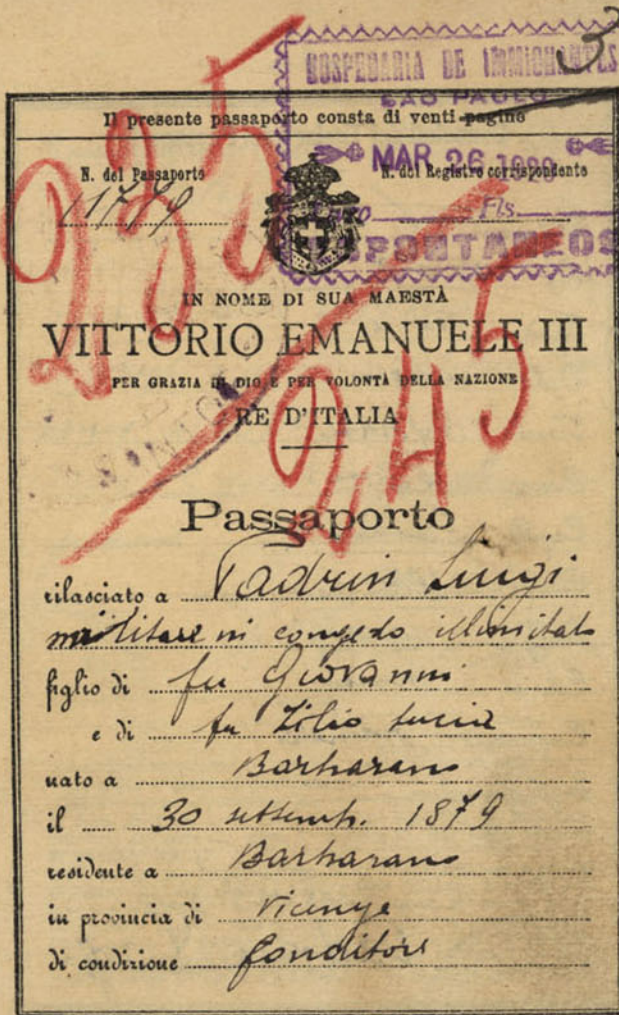 3
HOSPEDARIA DE IMMIGRANTES
SÃO PAULO
Il presente passaporto consta di venti pagine
MAR 26
N. del Passaporto
N. del Registro corrispondente
11779
Fls.
ESPONTANEOS
235
245
IN NOME DI SUA MAESTÀ
VITTORIO EMANUELE III
PER GRAZIA DI DIO E PER VOLONTÀ DELLA NAZIONE
RE D'ITALIA
Passaporto
rilasciato a Padrin Luigi
militare in congedo illimitato
figlio di fu Giovanni
e di fu Zilio Lucia
nato a Barbarano
il 30 settemb. 1879
residente a Barbarano
in provincia di Vicenza
di condizione fonditore